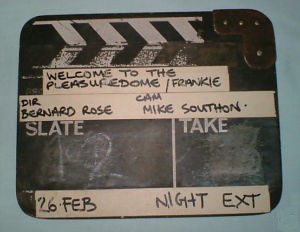 WELCOME TO THE
PLEASUREDOME/FRANKIE
DIR CAM
BERNARD ROSE MIKE SOUTHON.
SLATE TAKE
26.FEB NIGHT EXT